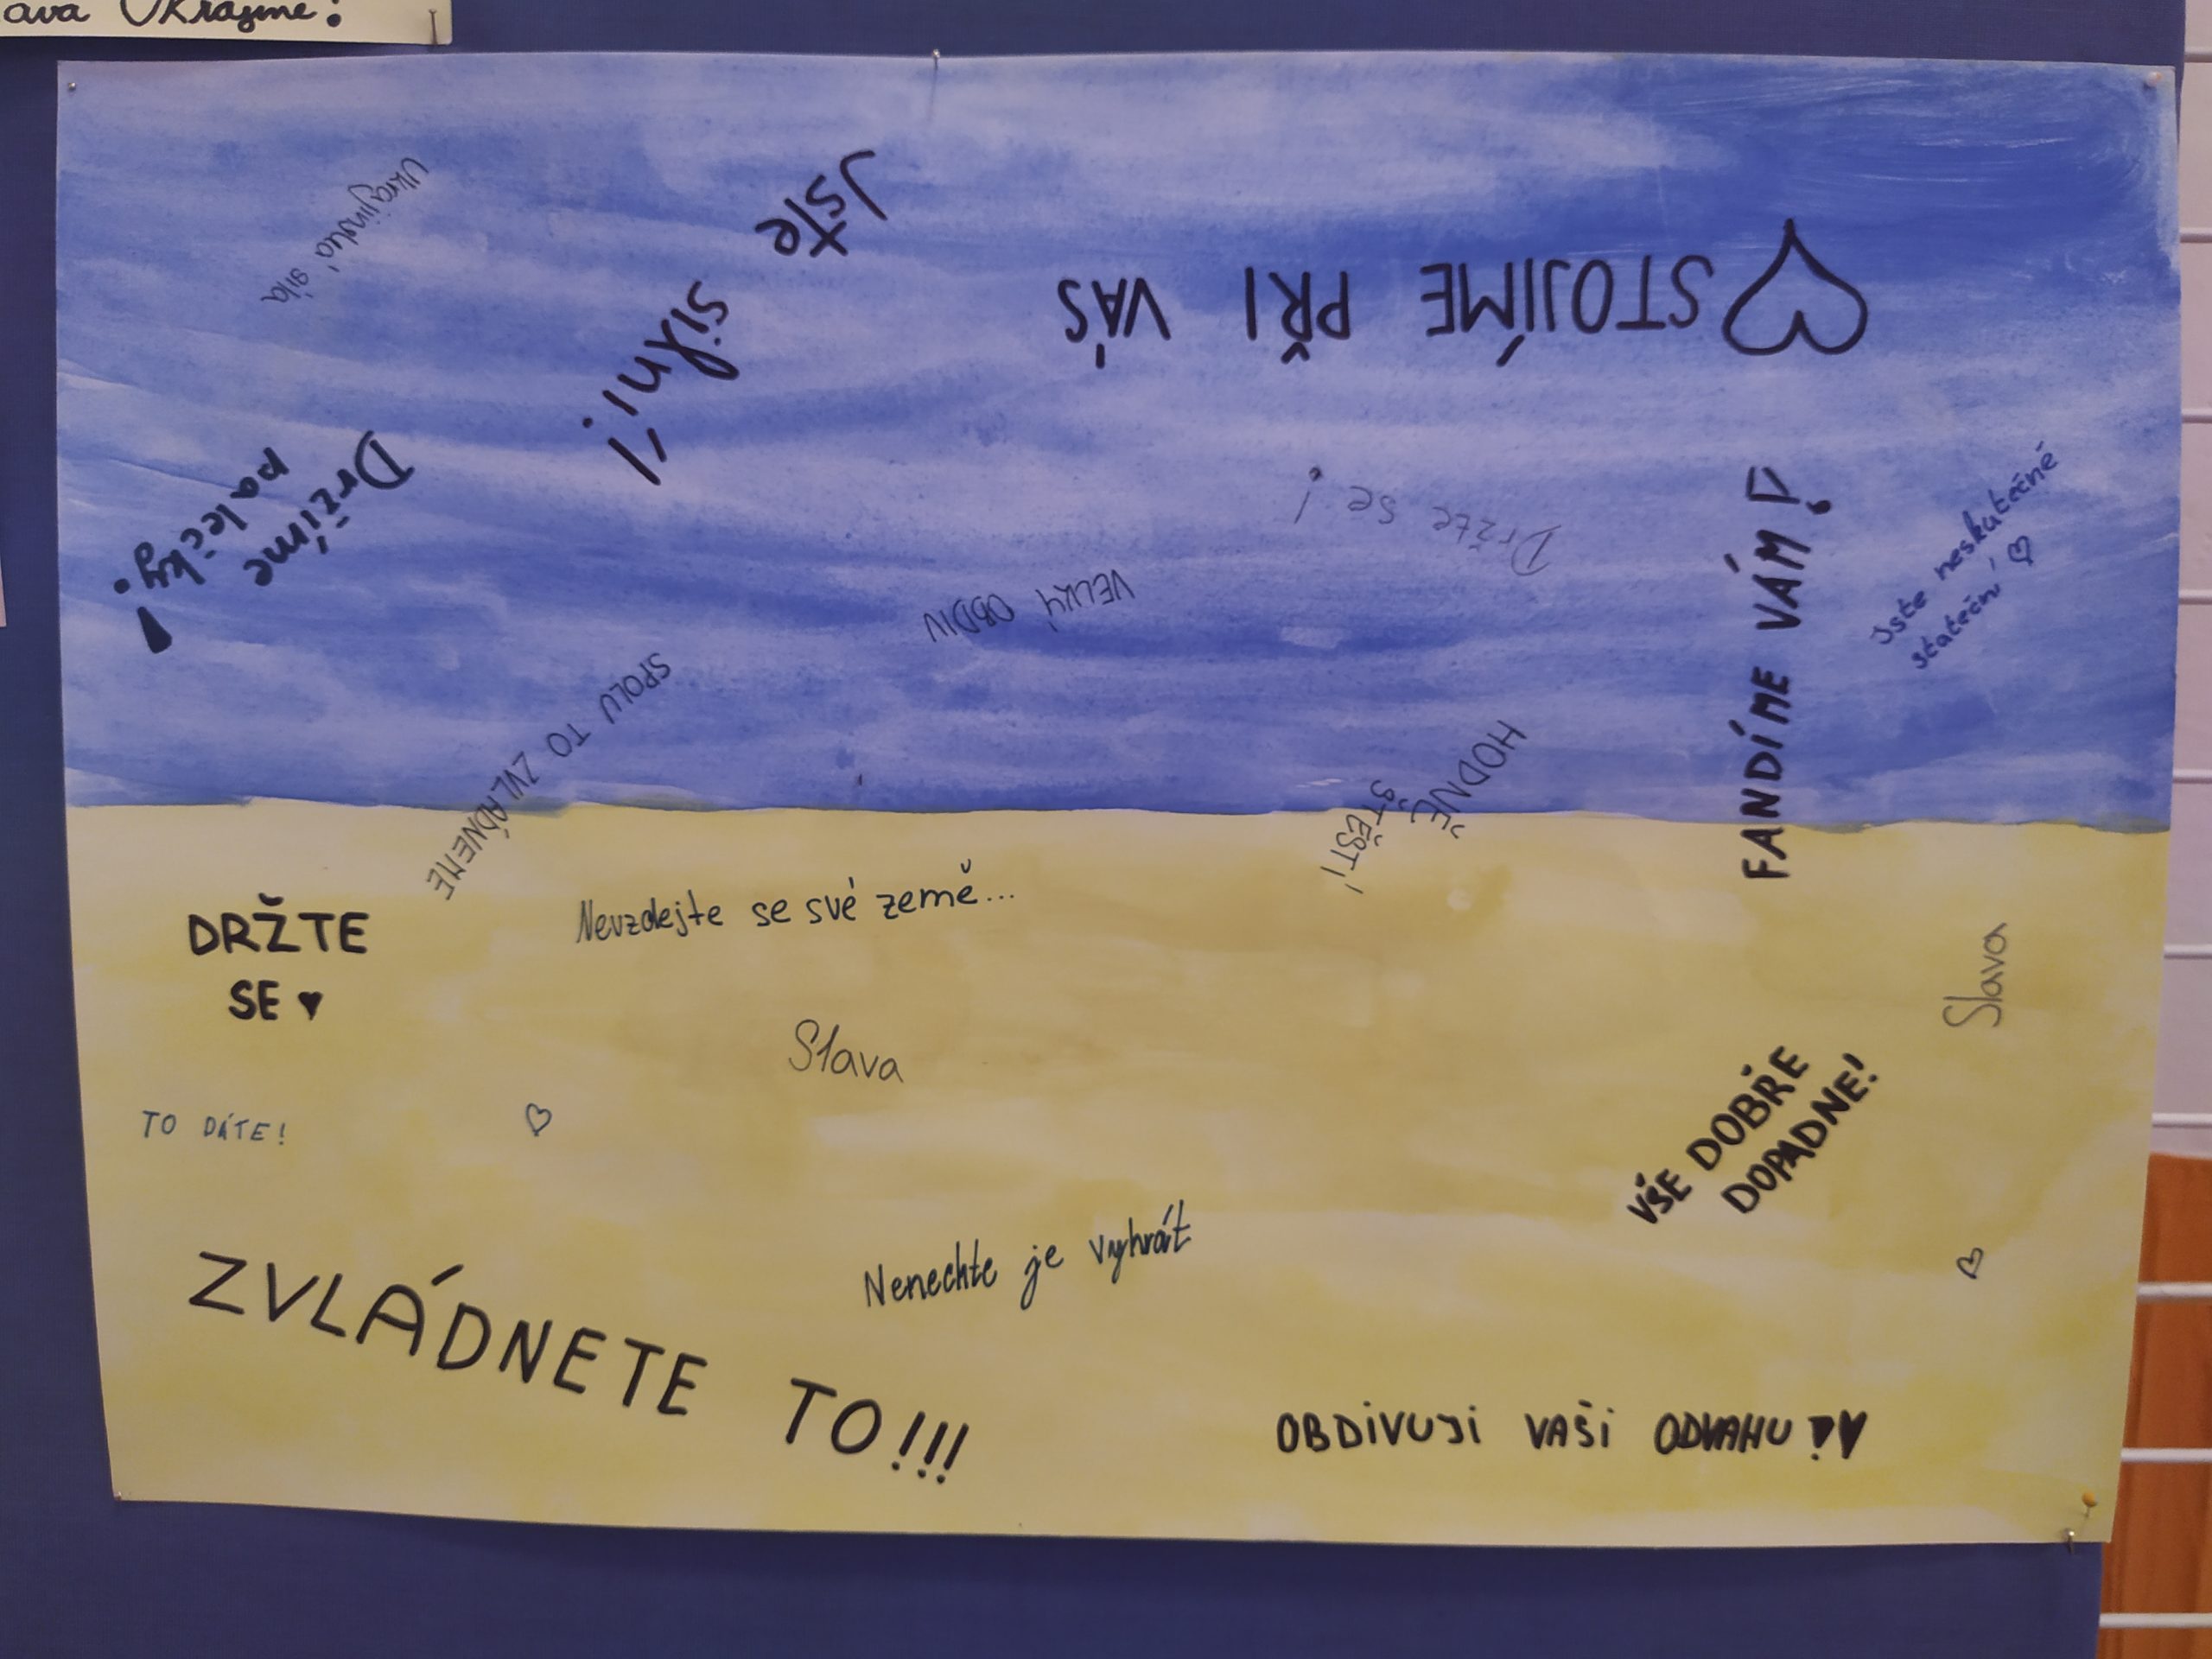 ava Ukrajině!
Ukrajinská síla
Jste
silní!
♡ STOJÍME PŘI VÁS
Držíme
palečky!
Držte se!
VELKÝ OBDIV
FANDÍME VÁM!
Jste neskutečně
stateční ♡
SPOLU TO ZVLÁDNEME
HODNĚ
ŠTĚSTÍ!
DRŽTE
SE ♥
Nevzdejte se své země...
Slava
Slava
TO DÁTE!
♡
VŠE DOBŘE
DOPADNE!
Nenechte je vyhrát
♡
ZVLÁDNETE TO!!!
OBDIVUJI VAŠI ODVAHU!♥